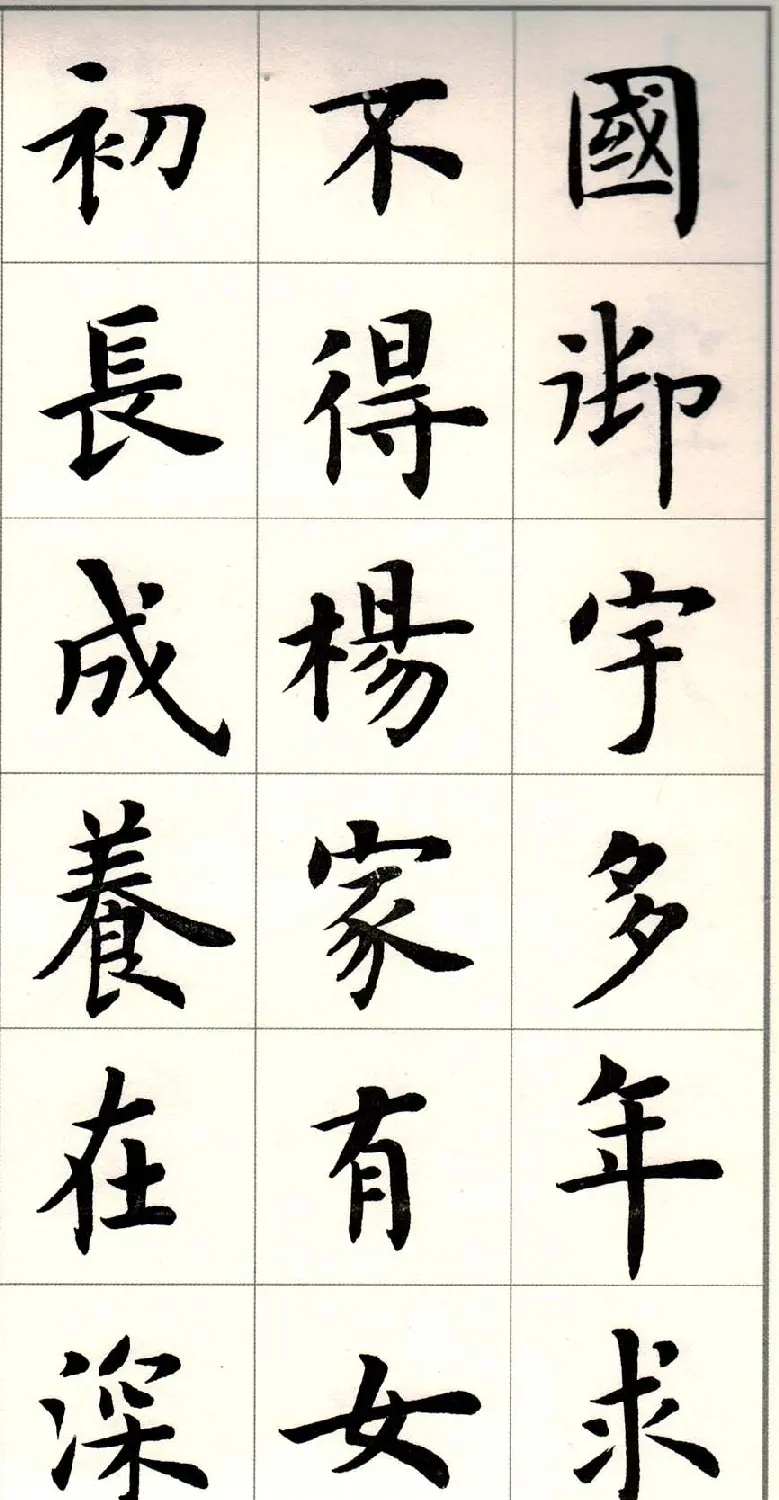 國御宇多年求
不得楊家有女
初長成養在深